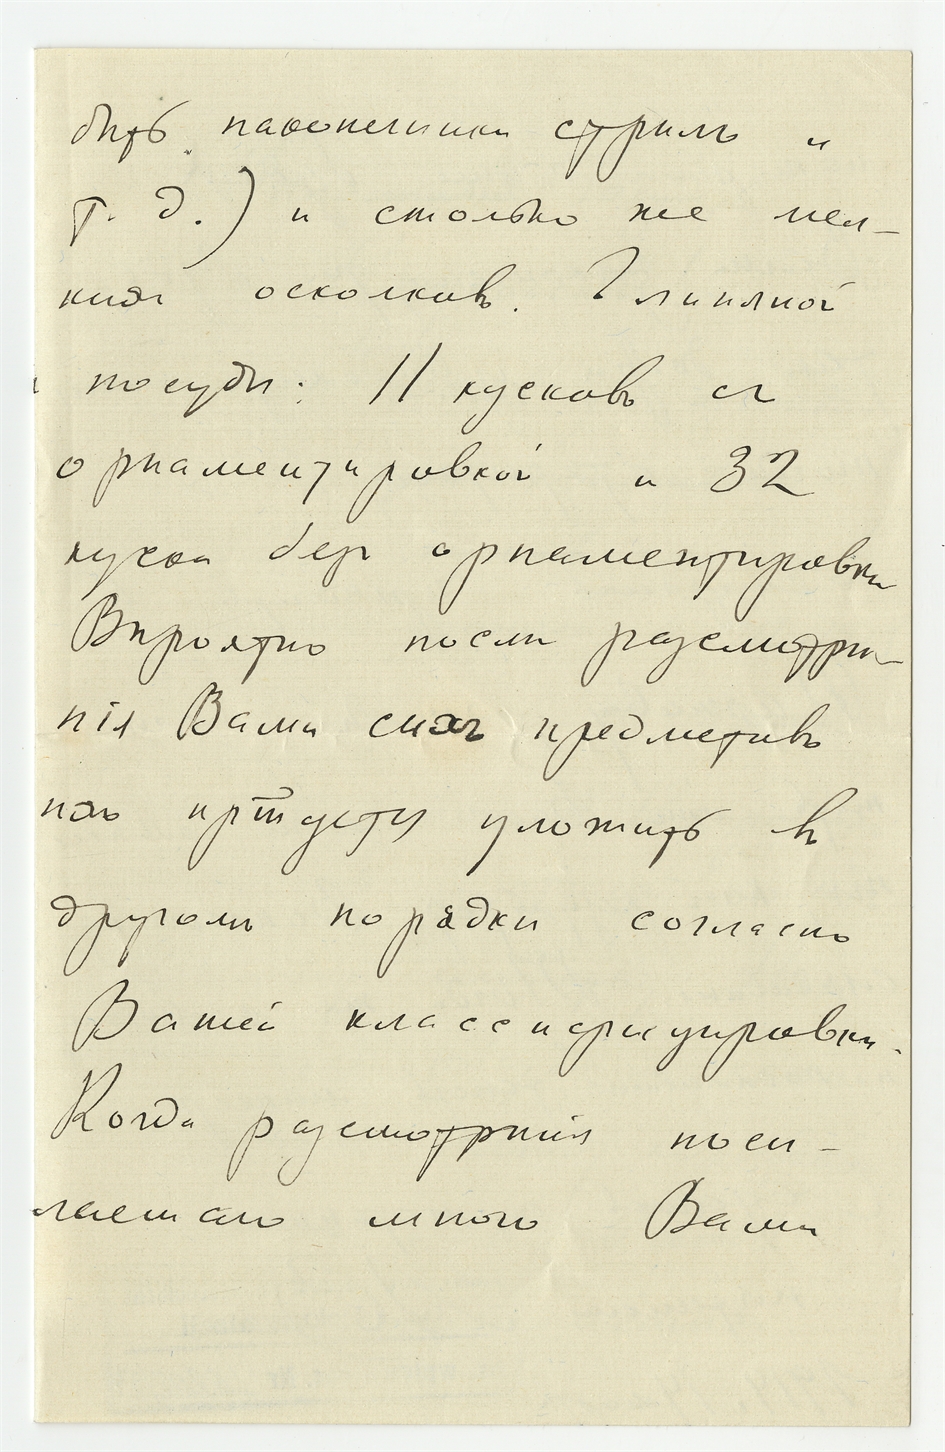 быть наконечники стрѣлъ и
т. д.) и столько же мел-
кихъ осколковъ. Глиняной
посуды: 11 кусковъ съ
орнаментировкой и 32
куска безъ орнаментировки
Вѣроятно послѣ разсмотрѣ-
нія Вами сихъ предметовъ
ихъ прійдется уложить въ
другомъ порядкѣ согласно
Вашей классифицировки.
Когда разсмотрѣнія посы-
лаемаго мною Вами